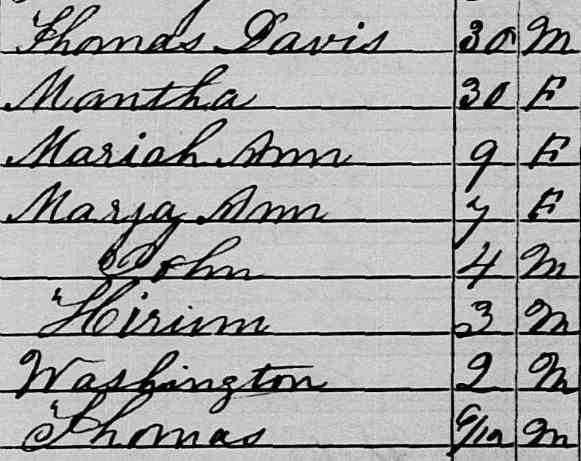 Thomas Davis 30 M
Mantha 30 F
Mariah Ann 9 F
Marya Ann 7 F
John 4 M
Hirium 3 M
Washington 2 M
Thomas 9/12 M